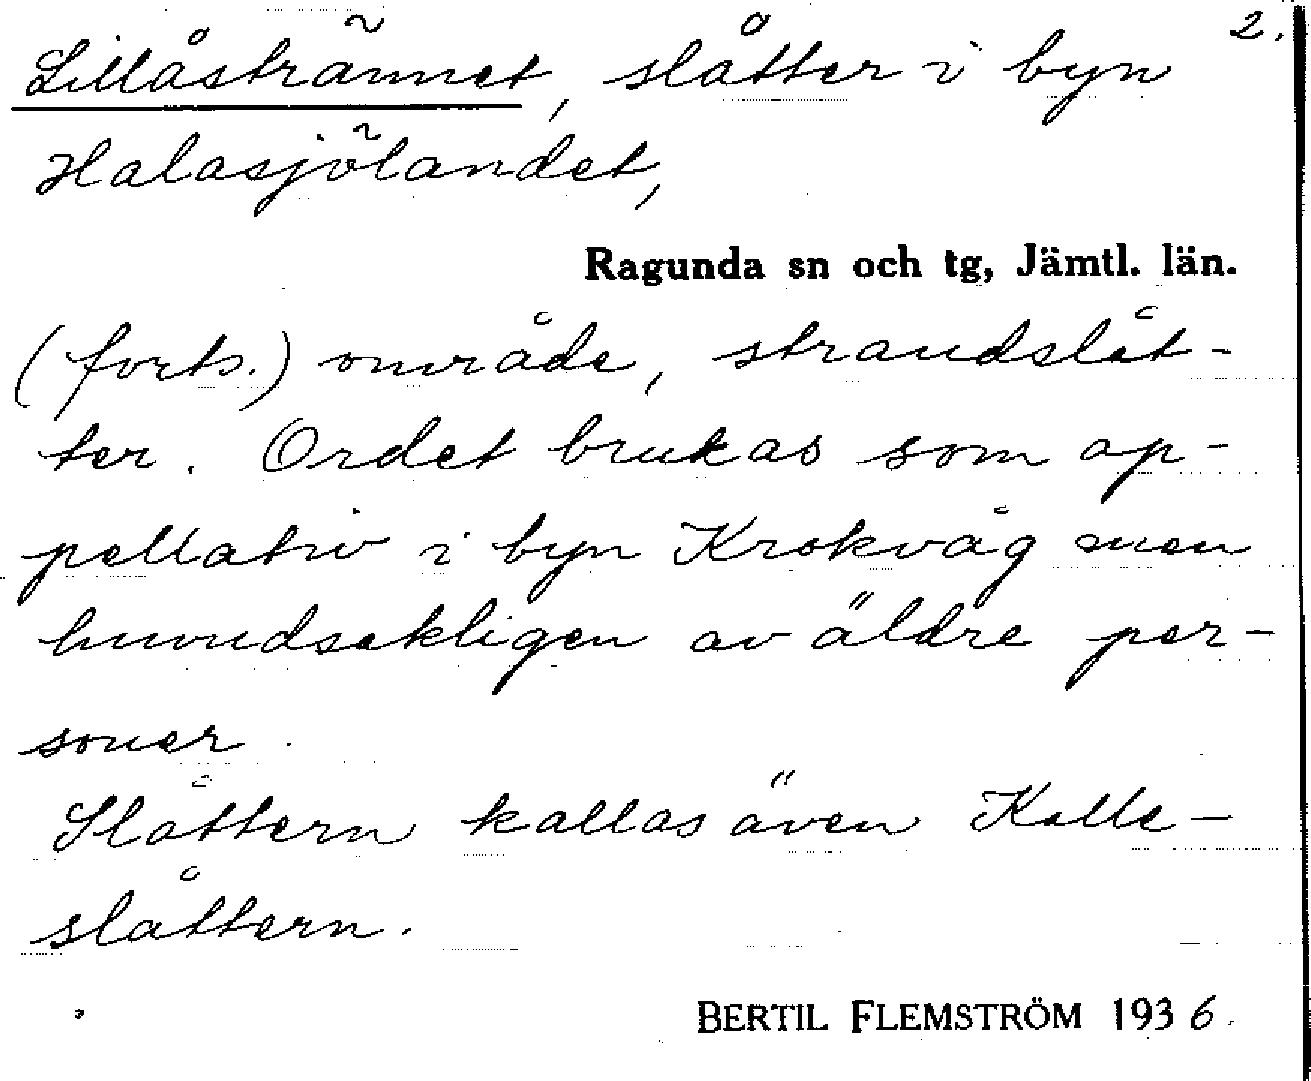 2.
Lillåstrännet, slåtter i byn
Halasjölandet,
Ragunda sn och tg, Jämtl. län.
(forts.) område, strandslåt-
ter. Ordet brukas som ap-
pellativ i byn Krokvåg men
huvudsakligen av äldre per-
soner.
Slåttern kallas även Kalle-
slåttern.
BERTIL FLEMSTRÖM 1936.